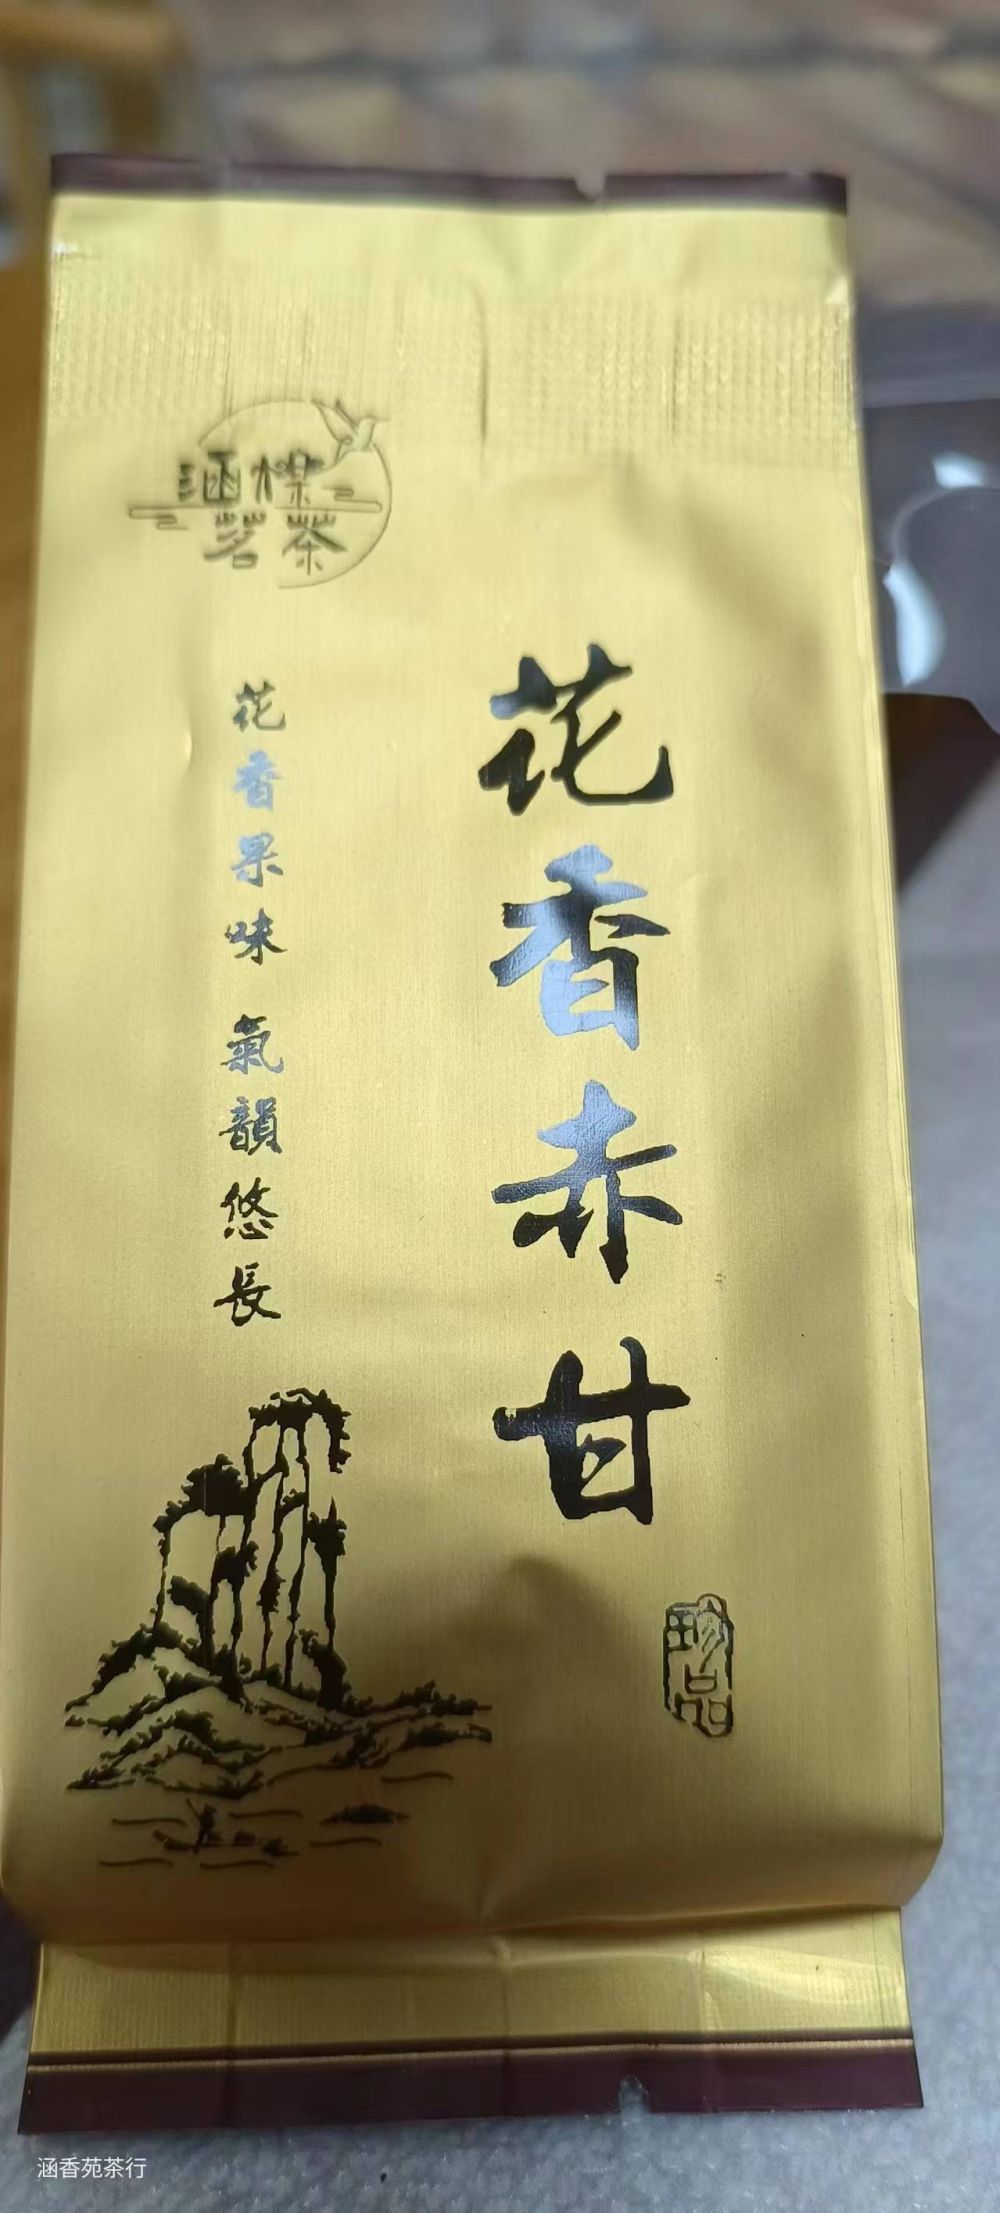 涵㵤茗茶
花香赤甘
珍品
花香果味 氣韻悠長
涵香苑茶行